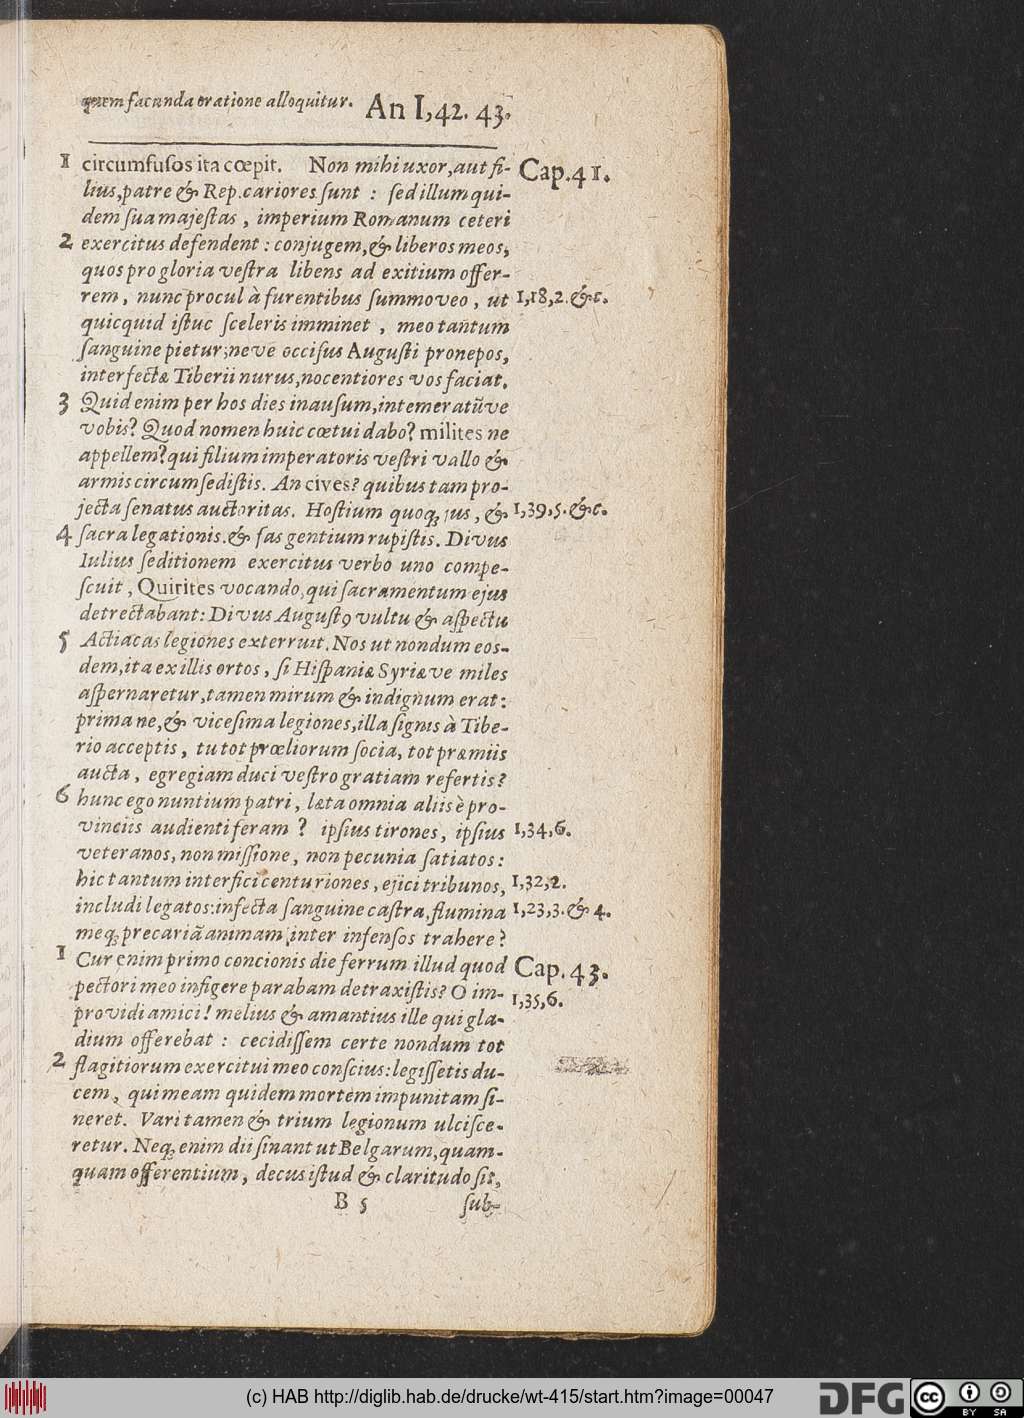 quem facunda oratione alloquitur. An I,42. 43.
1 circumfusos ita cœpit. Non mihi uxor, aut fi- Cap.41.
lius, patre & Rep. cariores sunt : sed illum qui-
dem sua majestas, imperium Romanum ceteri
2 exercitus defendent : conjugem, & liberos meos,
quos pro gloria vestra libens ad exitium offer-
rem, nunc procul à furentibus summoveo, ut 1,18,2.&c.
quicquid istuc sceleris imminet, meo tantum
sanguine pietur; neve occisus Augusti pronepos,
interfectæ Tiberii nurus, nocentiores vos faciat.
3 Quid enim per hos dies inausum, intemeratũve
vobis? Quod nomen huic cœtui dabo? milites ne
appellem? qui filium imperatoris vestri vallo &
armis circumsedistis. An cives? quibus tam pro-
jecta senatus auctoritas. Hostium quoq; jus, & 1,39,5.&c.
4 sacra legationis. & fas gentium rupistis. Divus
Iulius seditionem exercitus verbo uno compe-
scuit, Quirites vocando, qui sacramentum ejus
detrectabant: Divus August9 vultu & aspectu
5 Actiacas legiones exterruit. Nos ut nondum eos-
dem, ita ex illis ortos, si Hispaniæ Syriæve miles
aspernaretur, tamen mirum & indignum erat:
primane, & vicesima legiones, illa signis à Tibe-
rio acceptis, tu tot prœliorum socia, tot præmiis
aucta, egregiam duci vestro gratiam refertis?
6 hunc ego nuntium patri, læta omnia aliis è pro-
vinciis audienti feram ? ipsius tirones, ipsius 1,34,6.
veteranos, non missione, non pecunia satiatos:
hic tantum interfici centuriones, ejici tribunos, 1,32,2.
includi legatos: infecta sanguine castra, flumina 1,23,3.& 4.
meq; precariã animam inter infensos trahere?
1 Cur enim primo concionis die ferrum illud quod Cap. 43.
pectori meo infigere parabam detraxistis? O im- 1,35,6.
providi amici! melius & amantius ille qui gla-
dium offerebat : cecidissem certe nondum tot
2 flagitiorum exercitui meo conscius: legissetis du-
cem, qui meam quidem mortem impunitam si-
neret. Vari tamen & trium legionum ulcisce-
retur. Neq; enim dii sinant ut Belgarum, quam-
quam offerentium, decus istud & claritudo sit,
B 5 sub-
(c) HAB http://diglib.hab.de/drucke/wt-415/start.htm?image=00047 DFG cc BY SA